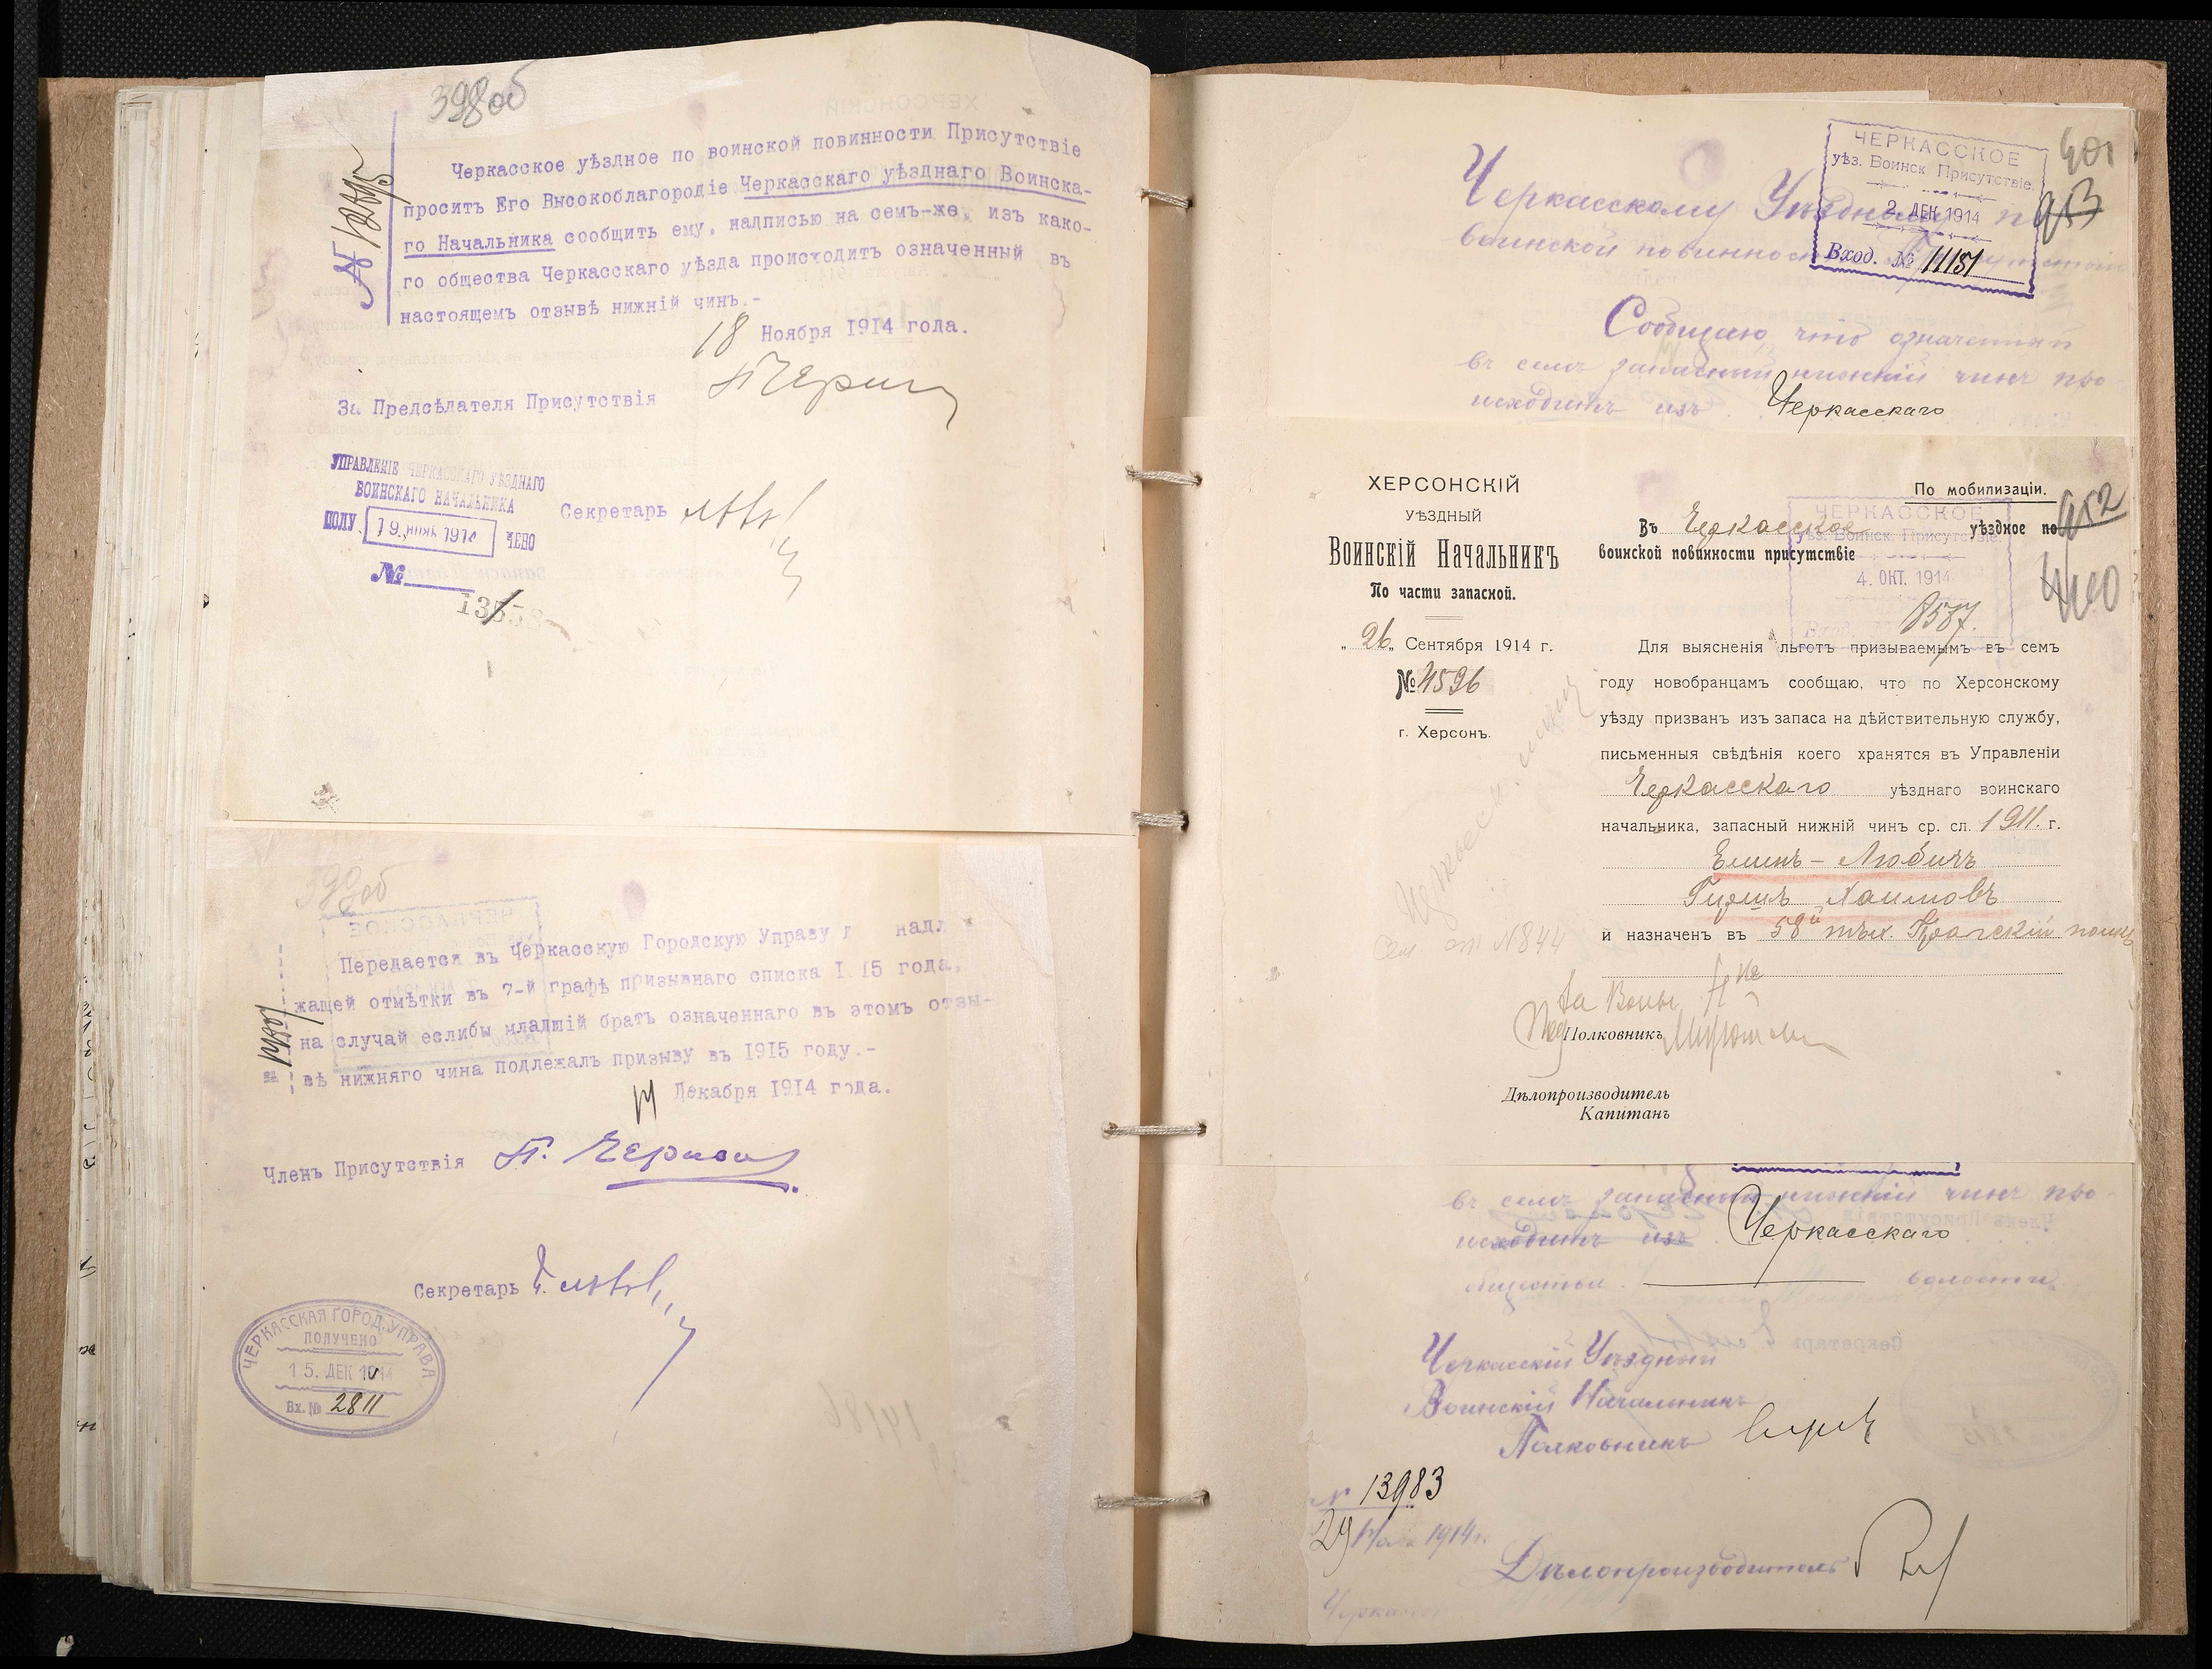 398об
Черкасское уѣздное по воинской повинности Присутствіе
проситъ Его Высокоблагородіе Черкасскаго уѣзднаго Воинска-
го Начальника сообщить ему, надписью на семъ-же, изъ како-
го общества Черкасскаго уѣзда происходитъ означенный въ
настоящемъ отзывѣ нижній чинъ.-
18 Ноября 1914 года.
За Предсѣдателя Присутствія
УПРАВЛЕНІЕ ЧЕРКАССКАГО УѢЗДНАГО
ВОИНСКАГО НАЧАЛЬНИКА
ПОЛУЧЕНО
№
Секретарь
399об
Передается въ Черкасскую Городскую Управу надле
жащей отмѣтки въ 7-й графѣ призывнаго списка 1915 года,
на случай еслибы младшій братъ означеннаго въ этомъ отзы-
вѣ нижняго чина подлежалъ призыву въ 1915 году.-
14 Декабря 1914 года.
Членъ Присутствія
Секретарь
ЧЕРКАССКАЯ ГОРОД. УПРАВА
ПОЛУЧЕНО
15. ДЕК 1914
Вх. № 2811
401
ЧЕРКАССКОЕ
уѣз. Воинск. Присутствіе.
2. ДЕК 1914
Вход. № 11151
Черкасскому Уѣздному по
воинской повинности
Сообщаю, что означенный
въ семъ запасный нижній чинъ про-
исходитъ изъ Черкасскаго
ХЕРСОНСКІЙ
УѢЗДНЫЙ
ВОИНСКІЙ НАЧАЛЬНИКЪ
По части запасной.
„26„ Сентября 1914 г.
№ 4596
г. Херсонъ.
По мобилизаціи.
Въ Черкасское уѣздное по
воинской повинности присутствіе
ЧЕРКАССКОЕ
уѣз. Воинск. Присутствіе.
4. ОКТ. 1914
8587.
400
Для выясненія льготъ призываемымъ въ семъ
году новобранцамъ сообщаю, что по Херсонскому
уѣзду призванъ изъ запаса на дѣйствительную службу,
письменныя свѣдѣнія коего хранятся въ Управленіи
Черкасскаго уѣзднаго воинскаго
начальника, запасный нижній чинъ ср. сл. 1911. г.
Елинъ-Любичъ
Гиршъ Хаимовъ
и назначенъ въ 58й пѣх. Прагскій полкъ
№ 844
Полковникъ
Дѣлопроизводитель
Капитанъ
въ семъ запасный нижній чинъ про-
исходитъ изъ Черкасскаго
общества. волости.
Черкасскій Уѣздный
Воинскій Начальникъ
Полковникъ
№ 13983
29 Ноя 1914 г.
Дѣлопроизводитель